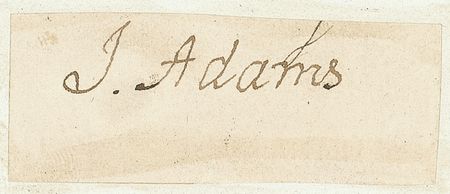 J. Adams